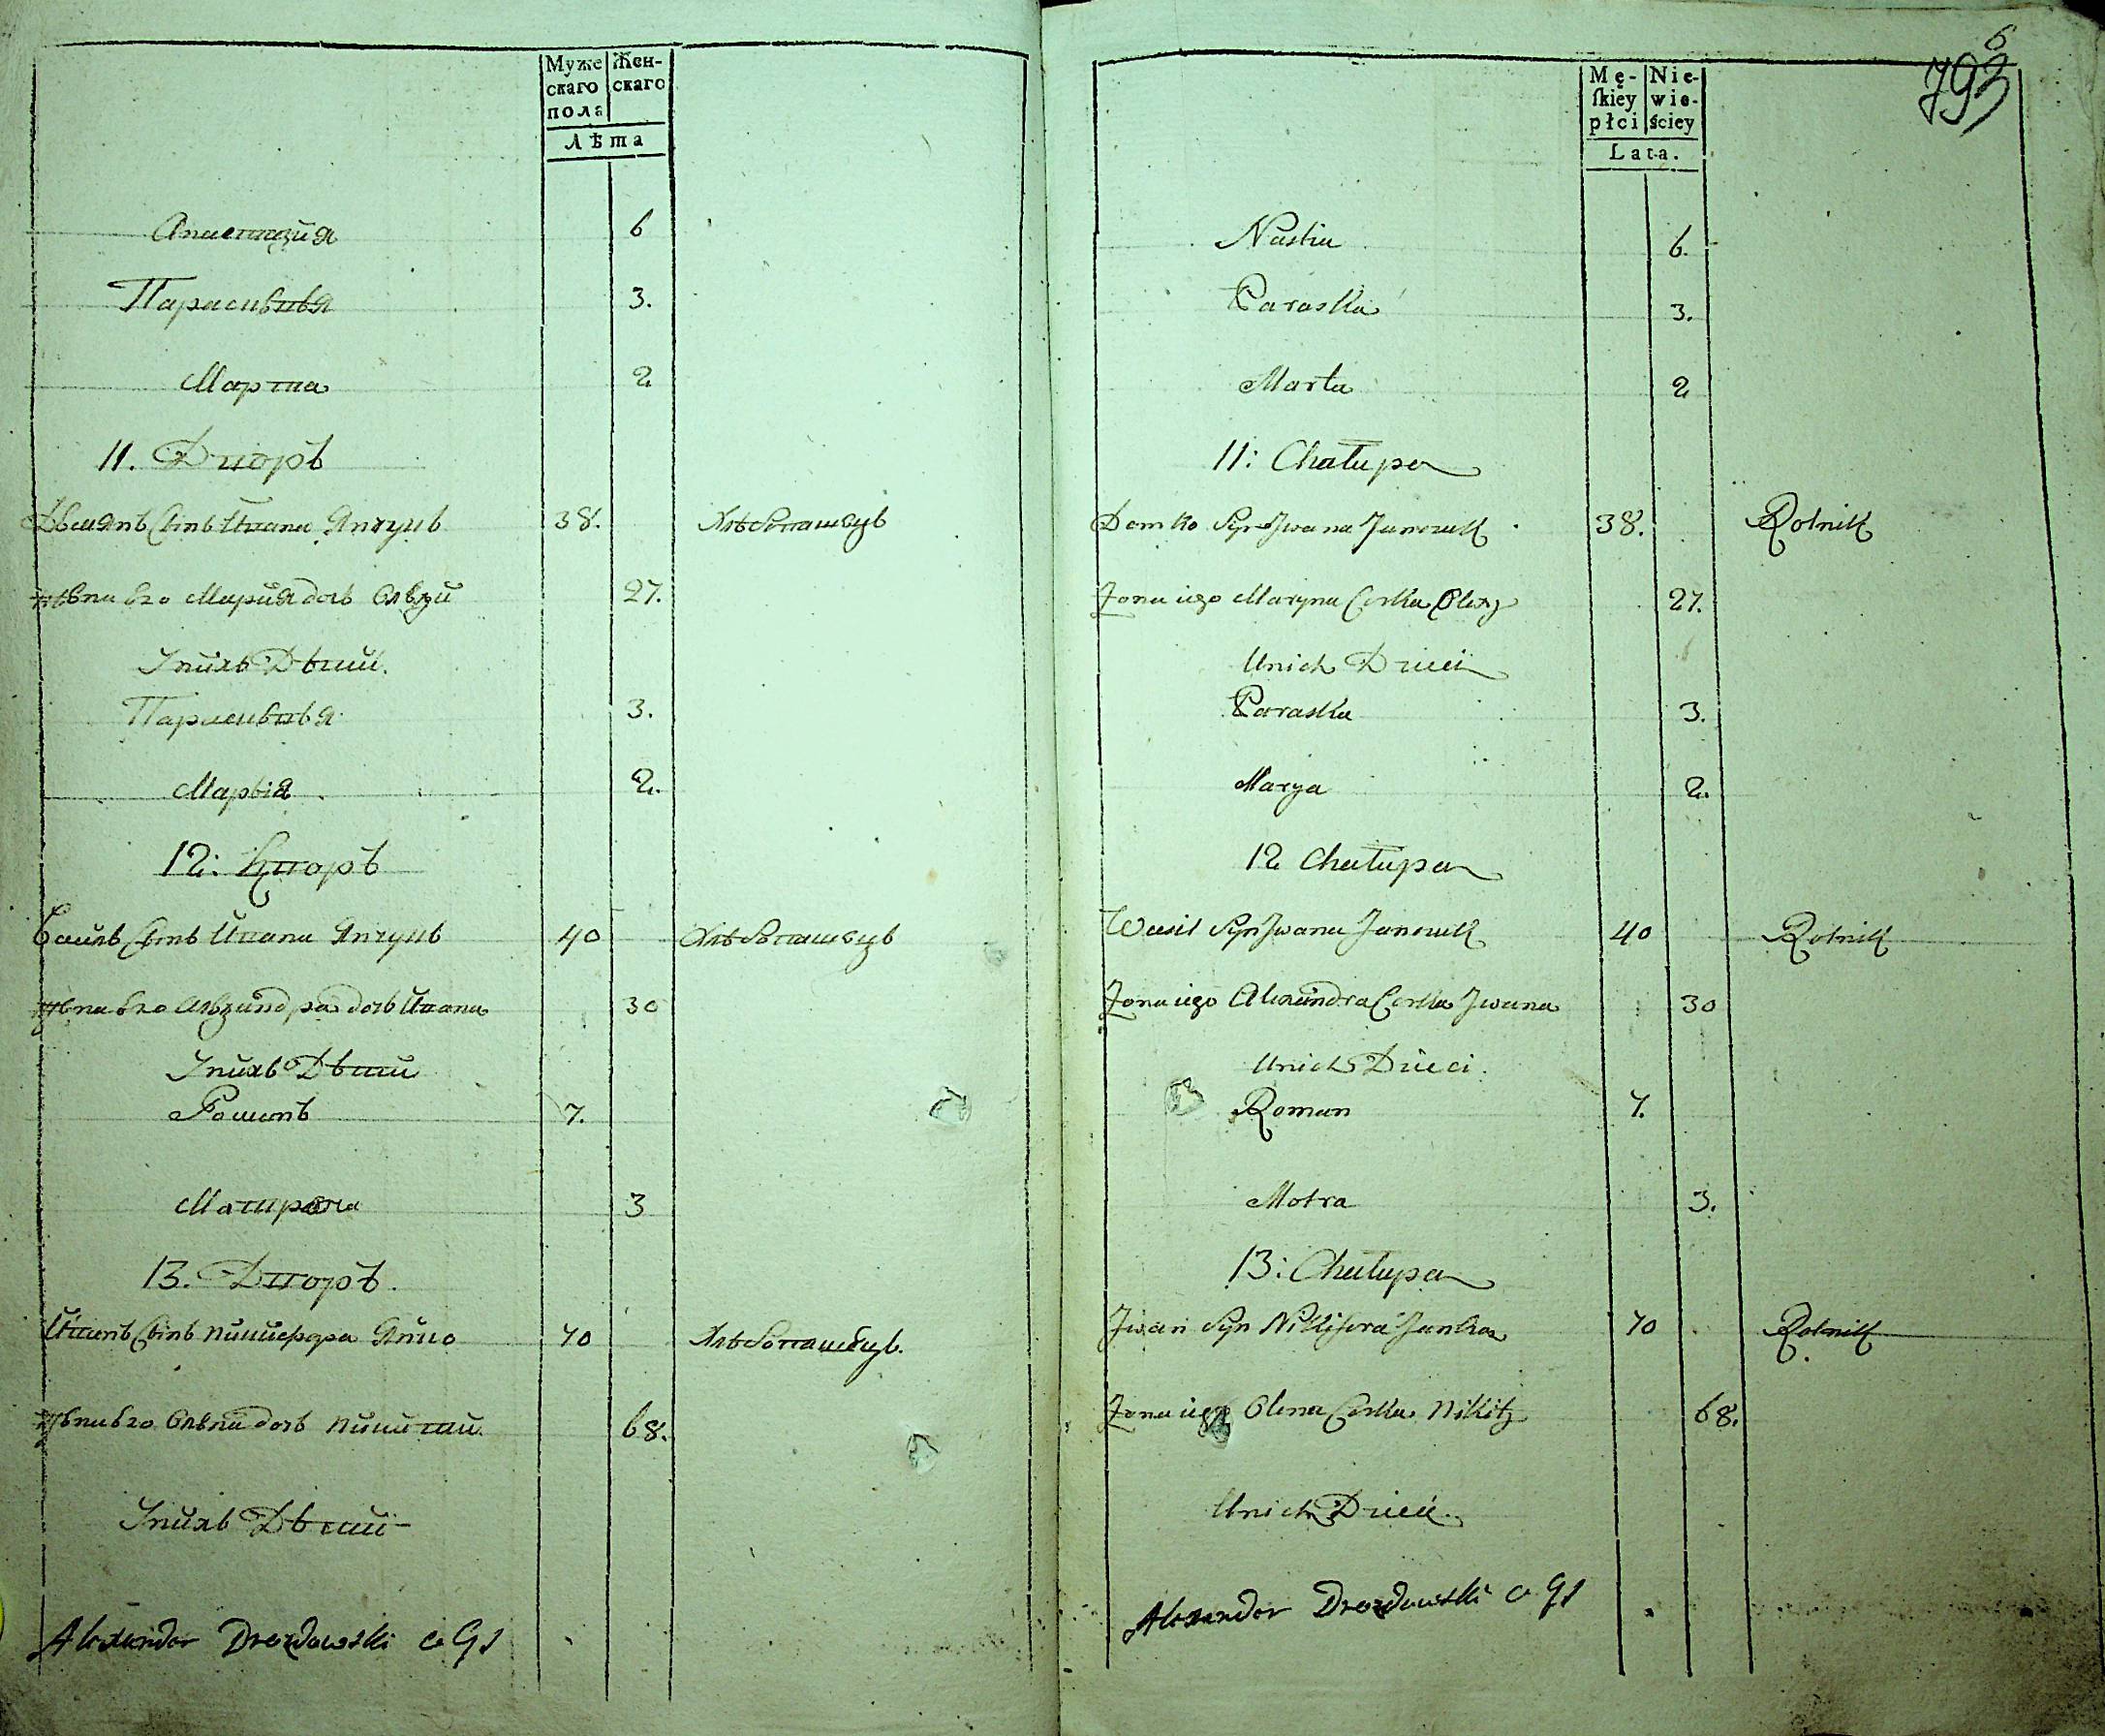 Муже
скаго
пола
Жен-
скаго
Лѣта
Анастазия 6
Параскывья 3.
Марта 2
11. Дворъ
Дьмянъ Сынъ Ивана Янчукъ 38. Хлѣбопашецъ
жена Его Мария дочь 27.
У нихъ Дѣти.
Параскывья 3.
Марыя 2.
12: Дворъ
Василь Сынъ Ивана Янчукъ 40 Хлѣбопашецъ
жена Его дочь Ивана 30
У нихъ Дѣти
Романъ 7.
Матрона 3
13. Дворъ.
Иванъ Сынъ Никифора Янко 70 Хлѣбопашецъ.
жена Его Олена дочь Никити. 68.
У нихъ Дѣти
Alexander Drozdowski
6
793
Mę-
ſkiey
płci
Nie-
wie-
ściey
Lata.
Nastia 6.
Paraska 3.
Marta 2
11: Chałupa
Demko Syn Jwana 38. Rolnik
Zona iego Maryna Corka 27.
Unich Dzieci
Paraska 3.
Marya 2.
12 Chałupa
Wasil Syn Jwana 40 Rolnik
Zona iego Alexandra Corka Jwana 30
Unich Dzieci.
Roman 7.
Motra 3.
13: Chałupa
Jwan Syn Nikifora Janko 70 Rolnik
Zona iego Olena Corka Nikity 68.
Unich Dzieci.
Alexander Drozdowski